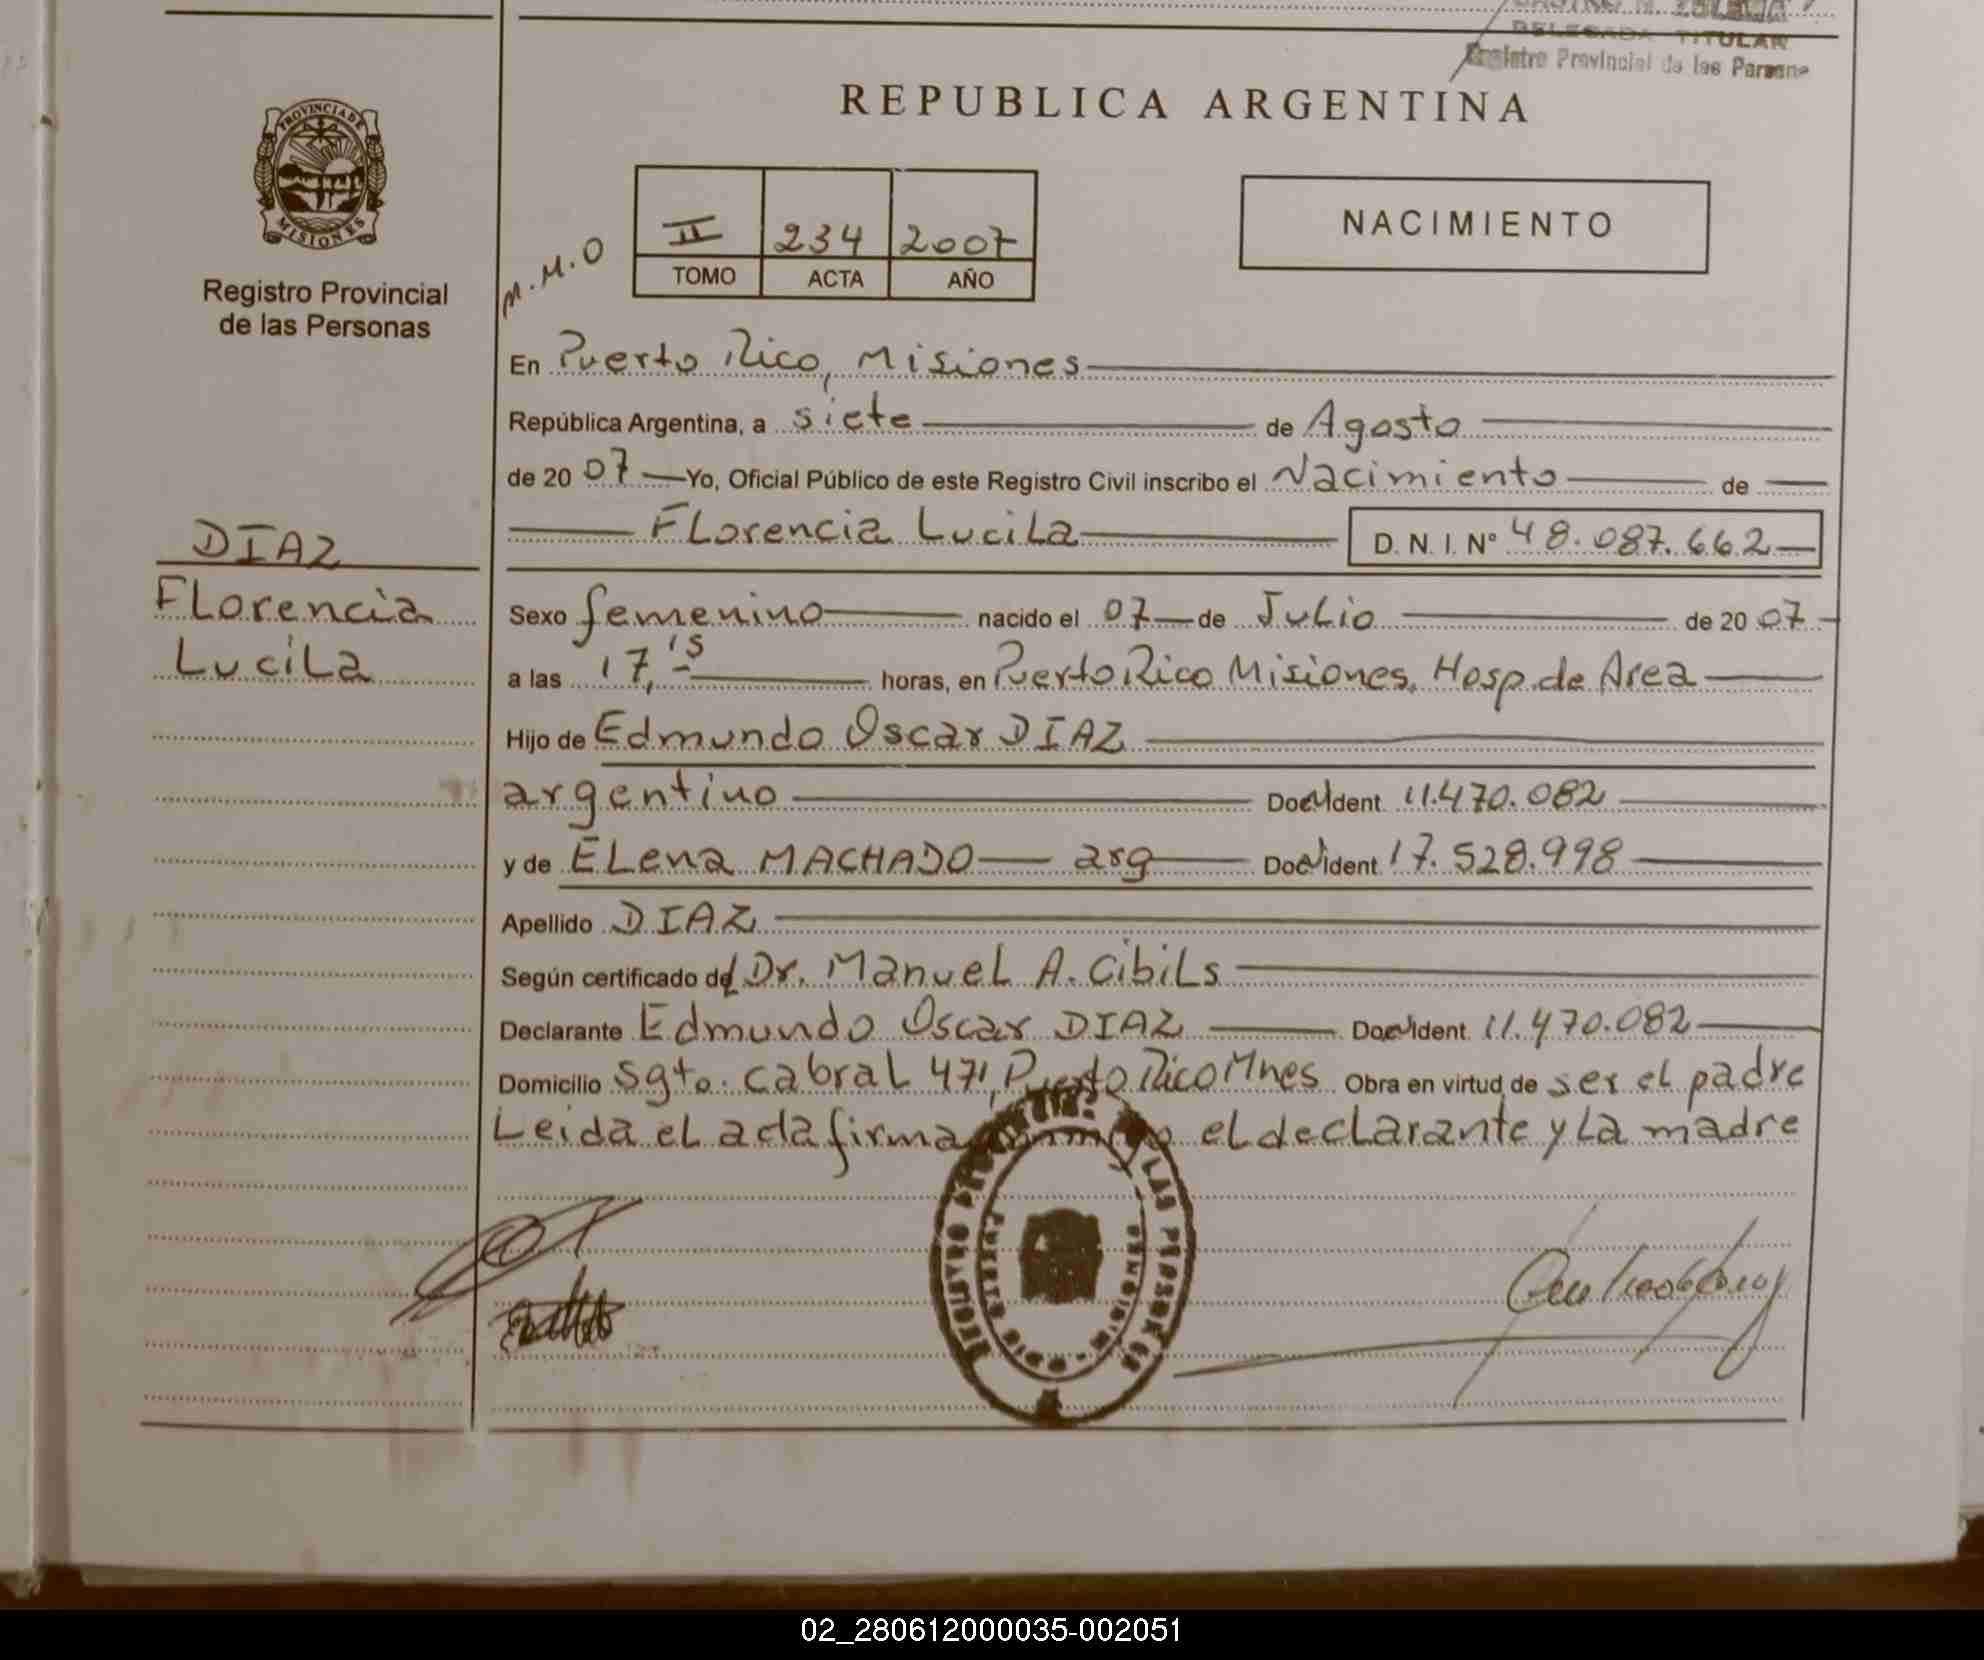 TITULAR
Registro Provincial de las
REPUBLICA ARGENTINA
PROVINCIA DE
MISIONES
Registro Provincial
de las Personas
II 234 2007
TOMO ACTA AÑO
NACIMIENTO
M.M.O
En Puerto Rico, Misiones
República Argentina, a siete de Agosto
de 2007 Yo, Oficial Público de este Registro Civil inscribo el Nacimiento de
Florencia Lucila D. N. I. Nº 48.087.662
DIAZ
Florencia
Lucila
Sexo femenino nacido el 07 de Julio de 2007
a las 17,15 horas, en Puerto Rico Misiones, Hosp. de Area
Hijo de Edmundo Oscar DIAZ
argentino Doc. Ident. 11.470.082
y de Elena MACHADO arg Doc. Ident. 17.528.998
Apellido DIAZ
Según certificado del Dr. Manuel A. Cibils
Declarante Edmundo Oscar DIAZ Doc. Ident. 11.470.082
Domicilio Sgto. Cabral 471, Puerto Rico Mnes Obra en virtud de ser el padre
Leida el acta firma el declarante y la madre
LAS PERSONAS
02_280612000035-002051